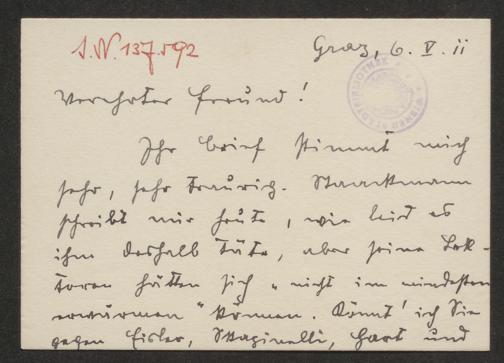 I.N. 137.592
Graz, 6. V. 11
WIENER STADTBIBLIOTHEK
Verehrter Freund!
Ihr Brief stimmt mich
sehr, sehr traurig. Staackmann
schreibt mir heute, wie leid es
ihm deshalb täte, aber seine Lek-
toren hätten sich „nicht im mindesten
erwärmen" können. Könnt' ich Sie
gegen Eisler, Skapinelli, Hart und